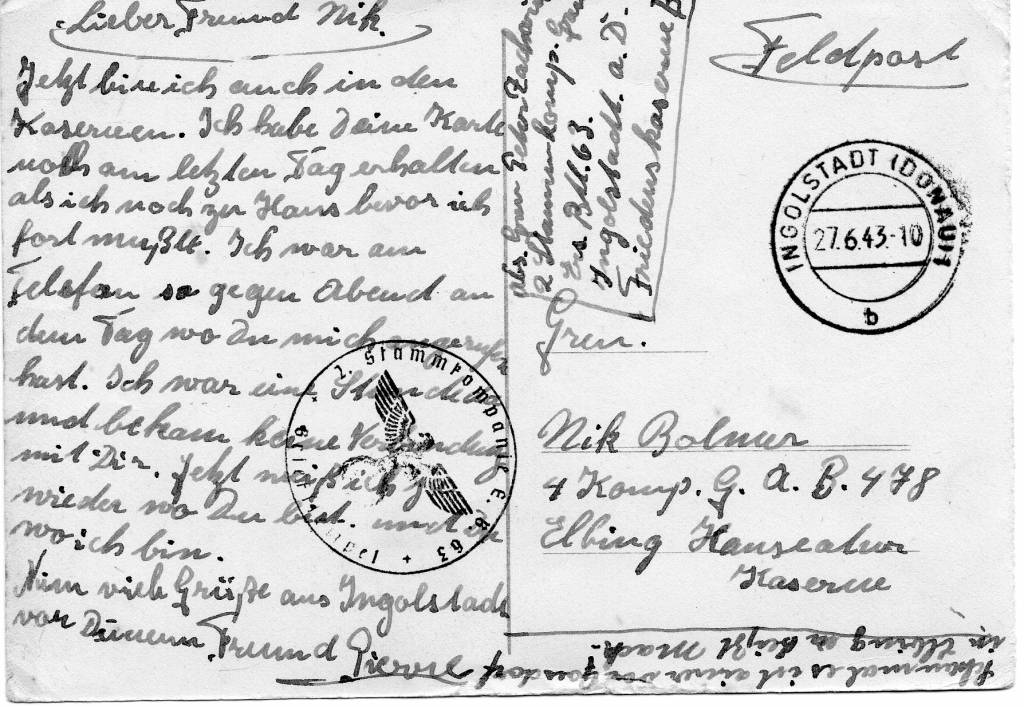 Lieber Freund Nik
Jetzt bin ich auch in den
Kasernen. Ich habe Deine Karte
noch am letzten Tag erhalten
als ich noch zu Haus bevor ich
fort mußte. Ich war am
Telefon so gegen Abend an
dem Tag wo Du mich angerufen
hast. Ich war eine Stunde
und bekam keine Verbindung
mit Dir. Jetzt weiß ich
wieder wo Du bist. und Du
wo ich bin.
Nim viele Grüße aus Ingolstadt
von Deinem Freund Pierre
Feldpost
INGOLSTADT (DONAU) 1
27.6.43.-10
b
Abs. Gren
2 Stammkomp. Gren
E. s Btl. 63.
Ingolstadt. a. D.
Friedenskaserne B
Gren.
Nik Bolmer
4 Komp. G. A. B. 478
Elbing Hanseatur
Kaserne
2. Stammkompanie E. B 63
Briefstempel
Schau mal es ist einer von
in Elbing er heißt